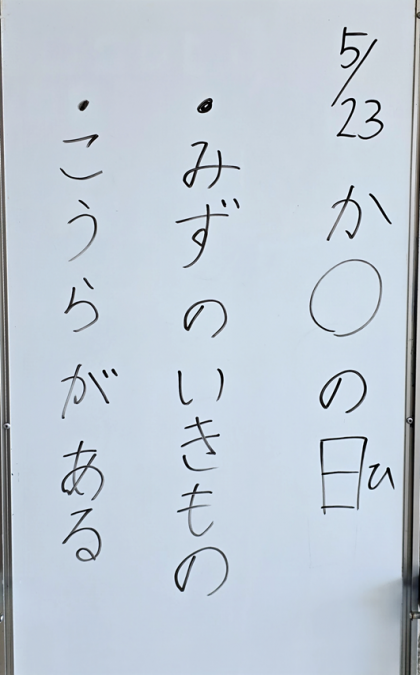 5/23 か○の日ひ
・みずのいきもの
・こうらがある